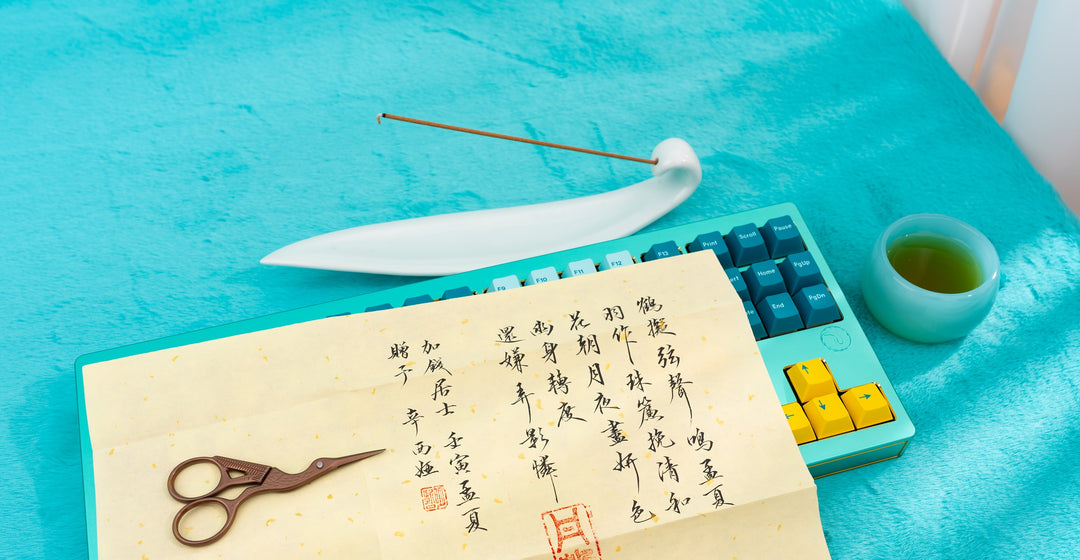 鶴擬弦聲鳴孟夏
羽作珠簾挽清和
花朝月夜盡妍色
身轉度
還嫌弄影憐
加錢居士 壬寅孟夏
贈予 辛西婭
F9 F10 F11 F12 F12 Print Scroll Pause
Home PgUp
End PgDn
↑
← ↓ →